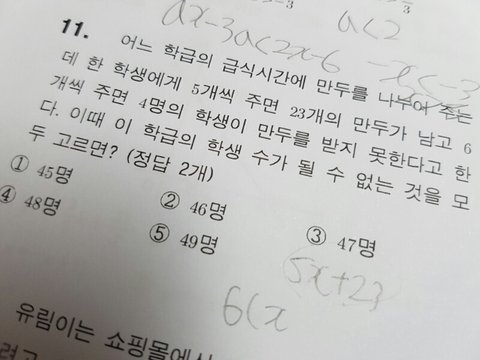 ax-3a<2x-6
a<2
-x<-3
11. 어느 학급의 급식시간에 만두를 나누어 주는
데 한 학생에게 5개씩 주면 23개의 만두가 남고 6
개씩 주면 4명의 학생이 만두를 받지 못한다고 한
다. 이때 이 학급의 학생 수가 될 수 없는 것을 모
두 고르면? (정답 2개)
① 45명 ② 46명 ③ 47명
④ 48명 ⑤ 49명
5x+23
6(x
유림이는 쇼핑몰에서
려고